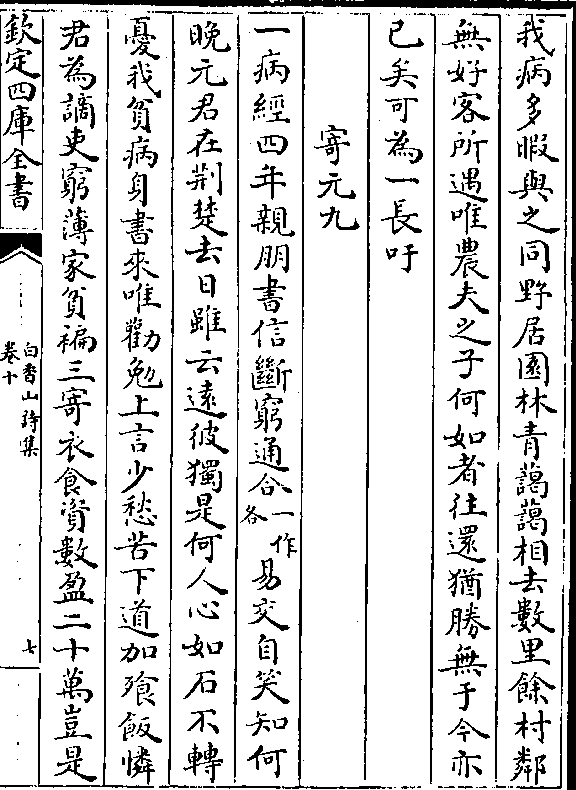 我病多暇與之同野居園林青藹藹相去數里餘村鄰
無好客所遇唯農夫之子何如者往還猶勝無于今亦
已矣可為一長吁
寄元九
一病經四年親朋書信斷窮通合一作各易交自笑知何
晚元君在荆楚去日雖云遠彼獨是何人心如石不轉
憂我貧病身書來唯勸勉上言少愁苦下道加飱飯憐
君為謫吏窮薄家貧褊三寄衣食資數盈二十萬豈是
欽定四庫全書
白香山詩集
卷十
七